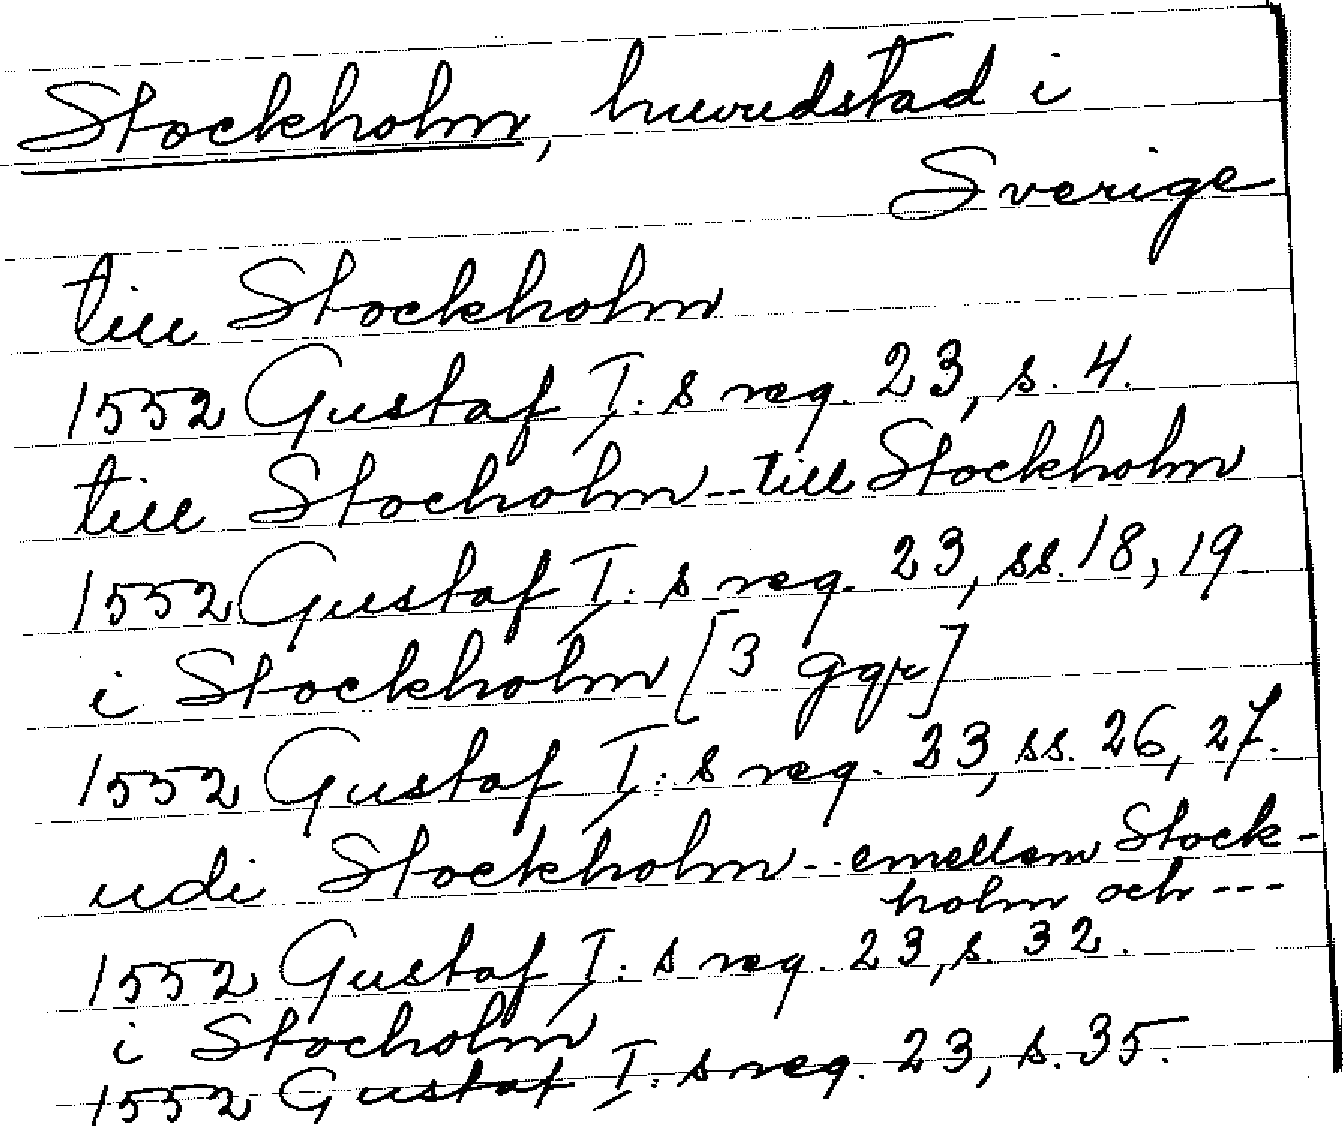 Stockholm, huvudstad i
Sverige
till Stockholm
1552 Gustaf I:s reg. 23, s. 4.
till Stocholm -- till Stockholm
1552 Gustaf I:s reg. 23, ss. 18, 19.
i Stockholm [3 ggr]
1552 Gustaf I:s reg. 23, ss. 26, 27.
udi Stockholm -- emellom Stock-
holm och ---
1552 Gustaf I:s reg. 23, s. 32.
i Stocholm
1552 Gustaf I:s reg. 23, s. 35.